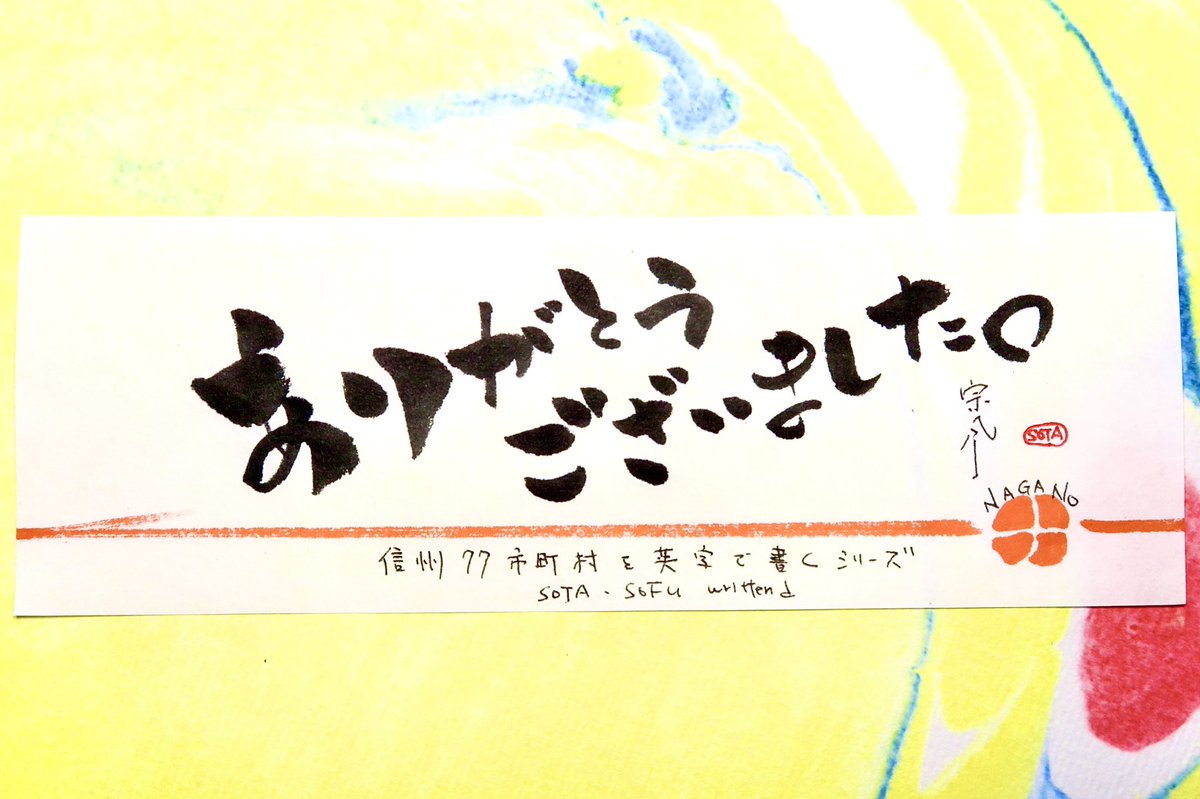 ありがとう
ございました。
宗風
SOTA
NAGANO
信州77市町村を英字で書くシリーズ
SOTA・SOFU writtend